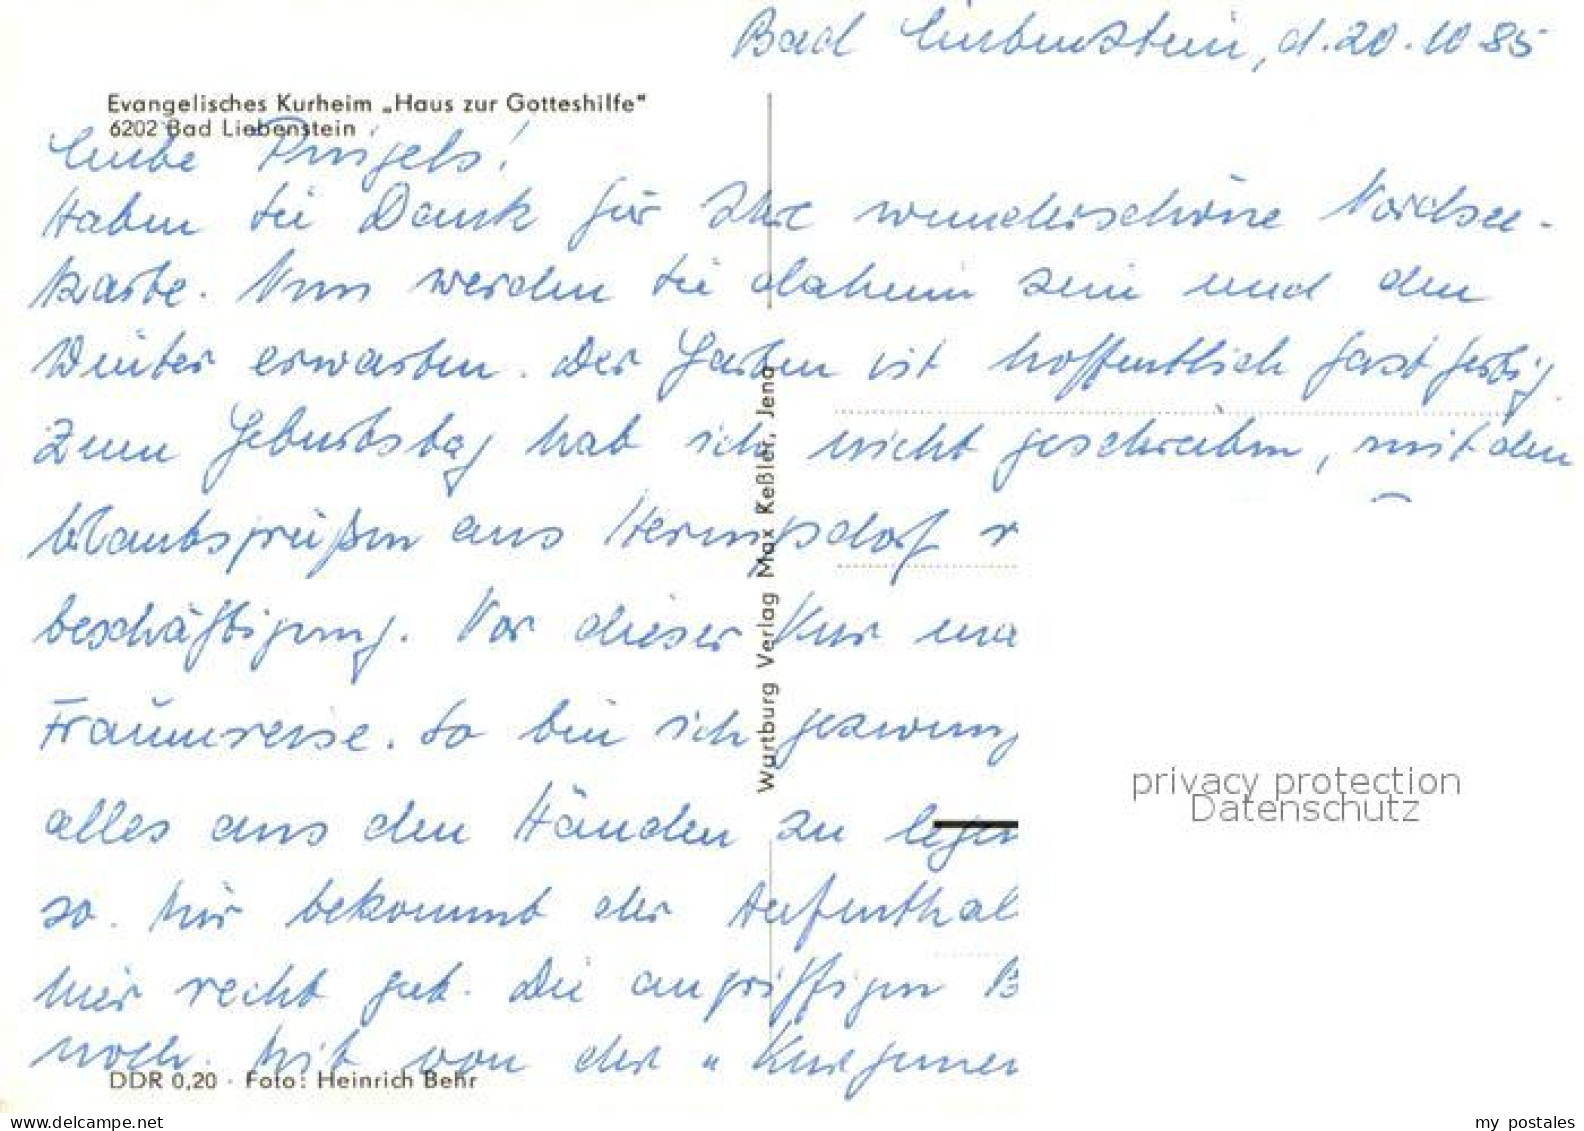 Bad Liebenstein, d. 20.10.85
Evangelisches Kurheim „Haus zur Gotteshilfe"
6202 Bad Liebenstein
Liebe Pringels!
Haben Sie Dank für Ihre wunderschöne Nordsee-
karte. Nun werden Sie daheim sein und den
Winter erwarten. Der Garten ist hoffentlich fast fertig.
Zum Geburtstag hab ich nicht geschrieben, mit den
Urlaubsgrüßen aus Hermsdorf
beschäftigung. Vor dieser Kur
So bin ich gezwung
alles aus den Händen zu legen
so. Mir bekommt der Aufenthal
hier recht gut. Die angriffigen B
noch. Mit von der "
Wartburg Verlag Max Keßler, Jena
DDR 0,20 · Foto: Heinrich Behr
privacy protection
Datenschutz
www.delcampe.net
my_postales